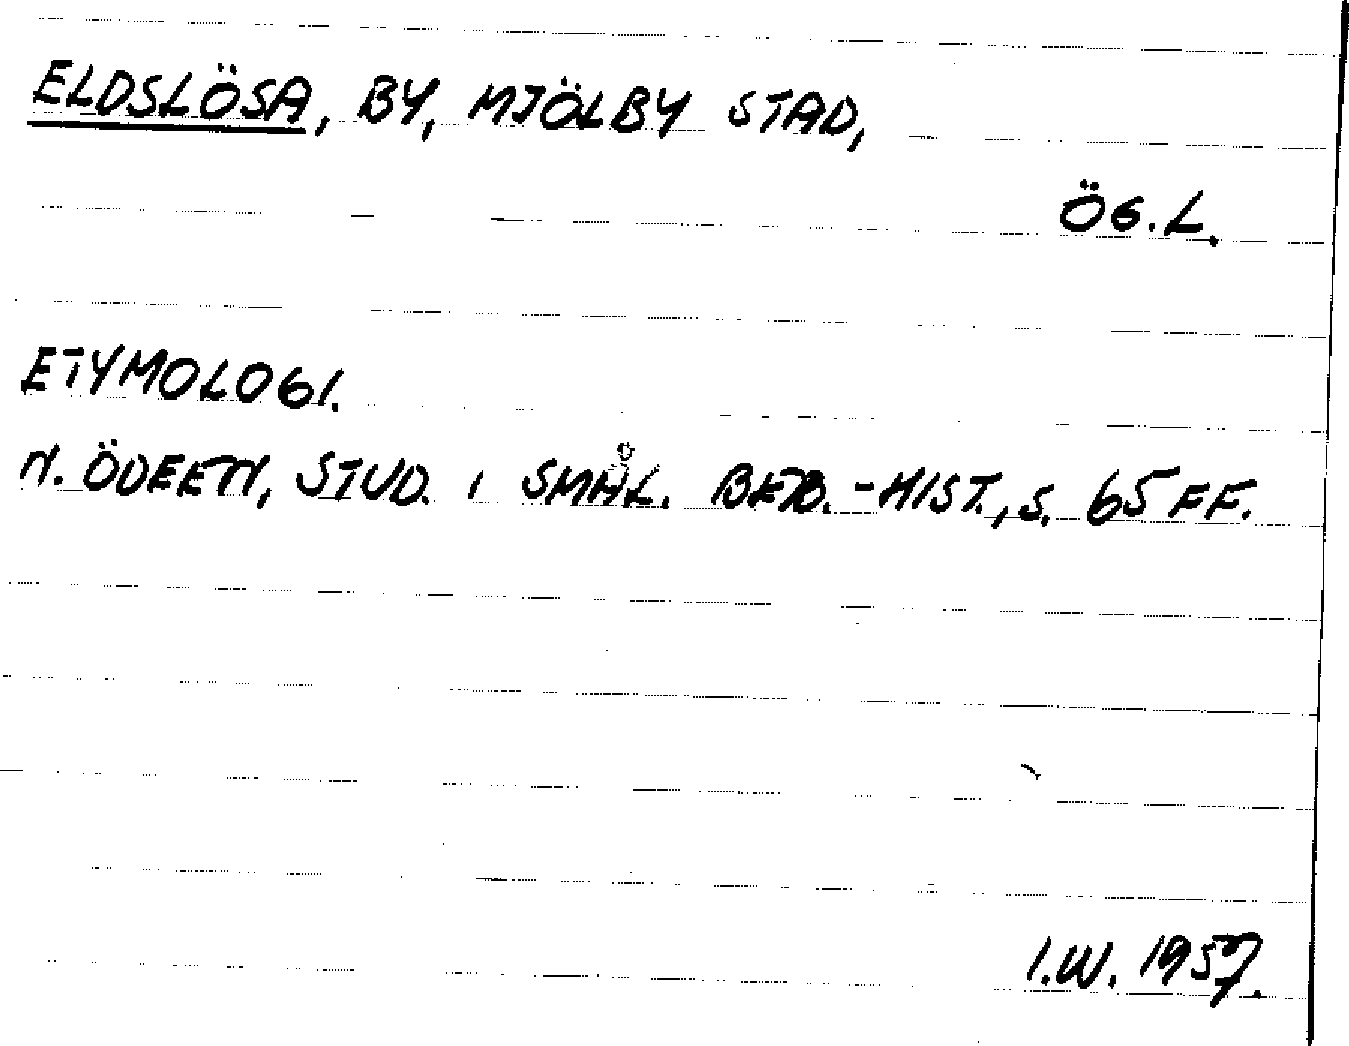 ELDSLÖSA, BY, MJÖLBY STAD,
ÖG.L.
ETYMOLOGI.
N. ÖDEEN, STUD. I SMÅL. BEB.-HIST., S. 65 FF.
I.W. 1957.